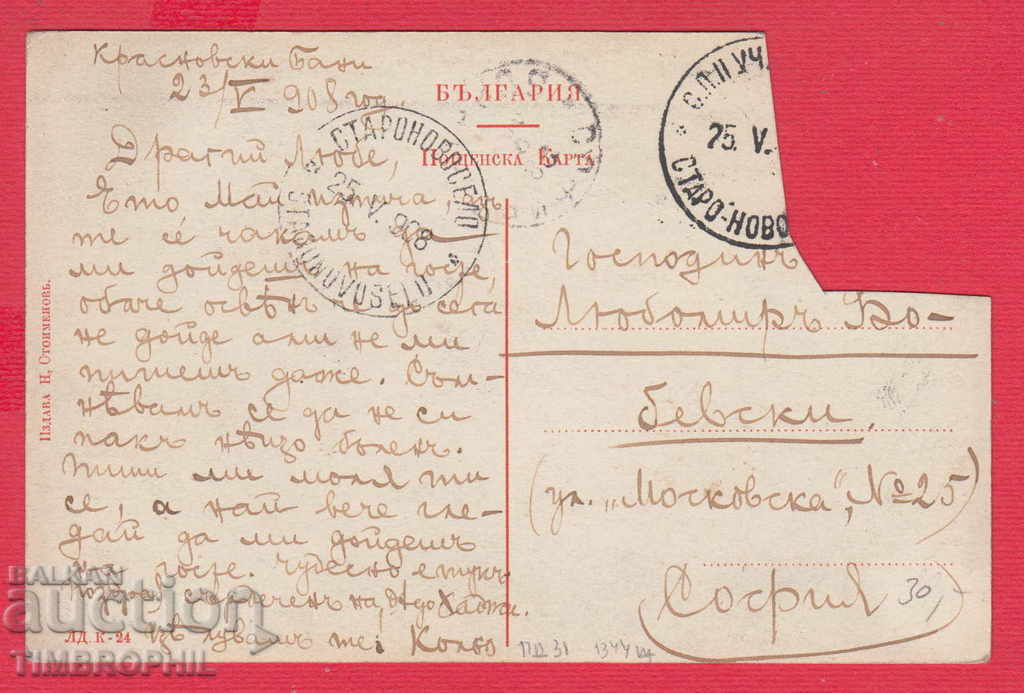 Красновски Бани
23/V 908 год.
БЪЛГАРИЯ
Пощенска Карта
СТАРОНОВОСЕЛО
25. V. 908
С.П.П УЧ.
25. V.
СТАРО-НОВО
Драгий Любе,
Ето, Май изтича,
те се чакамъ да
ми дойдешъ на госте,
обаче освѣнъ до сега
не дойде а ми не ми
пишешъ даже. Съм-
нѣвамъ се да не си
пакъ нѣщо боленъ.
Пиши ми моля ти
се, а най вече гле-
дай да ми дойдешъ
на госте. Чудесно е тукъ
Поздрави сърдеченъ на дядо Хаджи.
Цѣлувамъ те: Кольо
Господинъ
Любомиръ Бо-
бевски
(ул. „Московска", № 25)
София
30,-
Издава Н. Стоименовъ.
ЛД. К-24
ПД 31
1344
BALKAN
auction
TIMBROPHIL